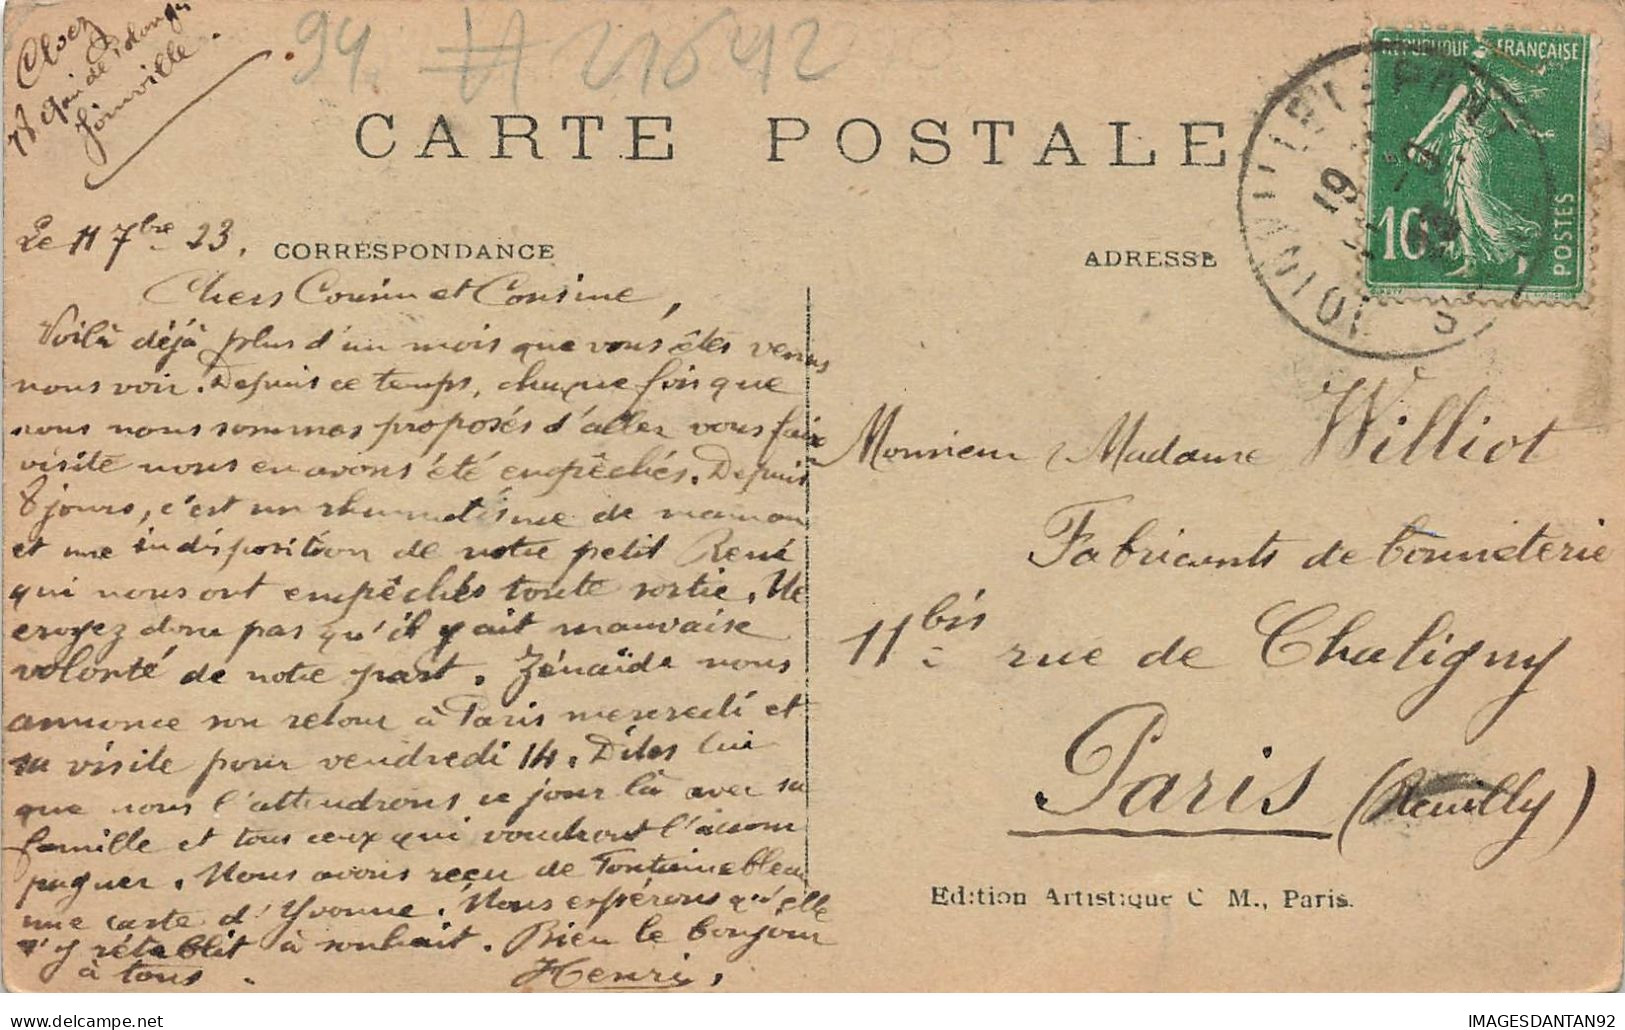 Clvez
78 Quai de Polangis
Joinville.
94. # 21642
CARTE POSTALE
REPUBLIQUE FRANÇAISE
10c
POSTES
JOINVILLE-LE-PONT
19
Le 11 7bre 23.
CORRESPONDANCE
ADRESSE
Chers Cousin et Cousine,
Voilà déjà plus d'un mois que vous êtes venus
nous voir. Depuis ce temps, chaque fois que
nous nous sommes proposés d'aller vous faire
visite nous en avons été empêchés. Depuis
8 jours, c'est un rhumatisme de maman
et une indisposition de notre petit René
qui nous ont empêchés toute sortie. Ne
croyez donc pas qu'il y ait mauvaise
volonté de notre part. Zénaïde nous
annonce son retour à Paris mercredi et
sa visite pour vendredi 14. Dites lui
que nous l'attendrons ce jour là avec sa
famille et tous ceux qui voudront l'accom
pagner. Nous avons reçu de Fontainebleau
une carte d'Yvonne. Nous espérons qu'elle
s'y rétablit à souhait. Bien le bonjour
à tous. Henri.
Monsieur Madame Williot
Fabricants de bonneterie
11 bis rue de Chaligny
Paris (Reuilly)
Edition Artistique C M., Paris.
IMAGESDANTAN92